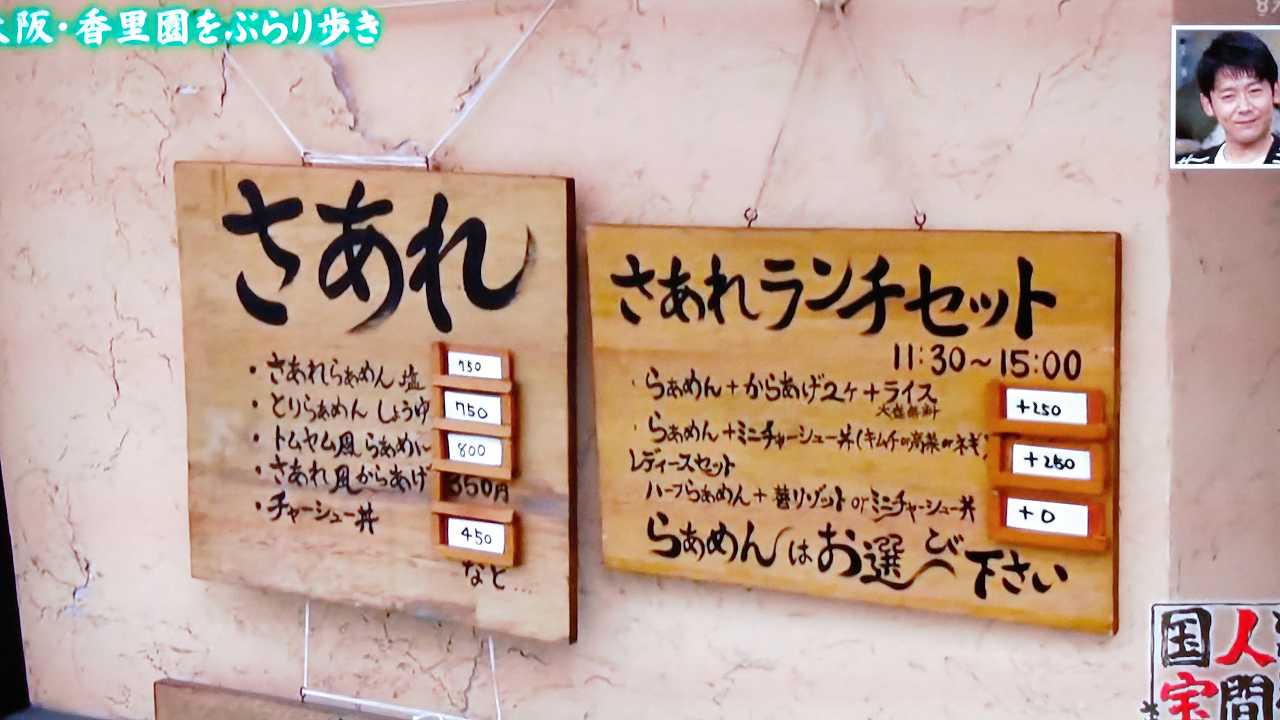 大阪・香里園をぶらり歩き
さあれ
・さあれらぁめん 塩 750
・とりらぁめん しょうゆ 750
・トムヤム風 らぁめん 800
・さあれ風からあげ 350円
・チャーシュー丼 450
など…
さあれランチセット
11:30〜15:00
・らぁめん+からあげ2ケ+ライス +250
大盛無料
・らぁめん+ミニチャーシュー丼(キムチor高菜orネギ) +250
レディースセット
ハーフらぁめん+ リゾット or ミニチャーシュー丼 +0
らぁめんはお選び下さい
国人
宝間